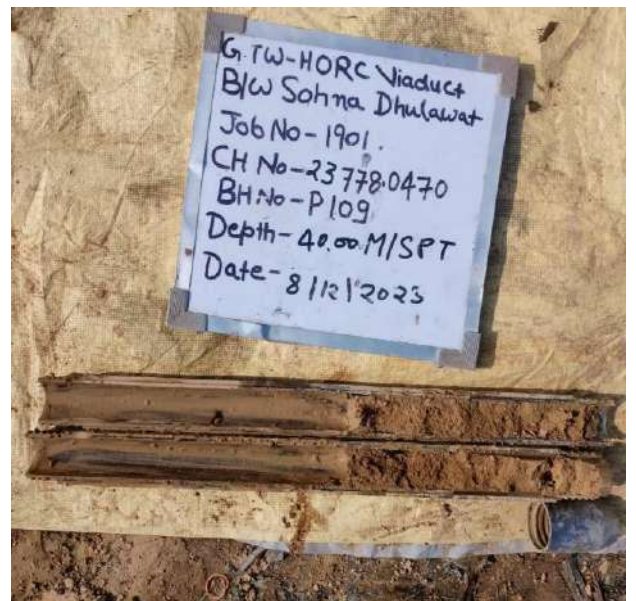 G.TW-HORC Viaduct
B/W Sohna Dhulawat
Job No-1901.
CH No-23778.0470
BH.No-P109
Depth-40.00 M/SPT
Date-8/12/2023